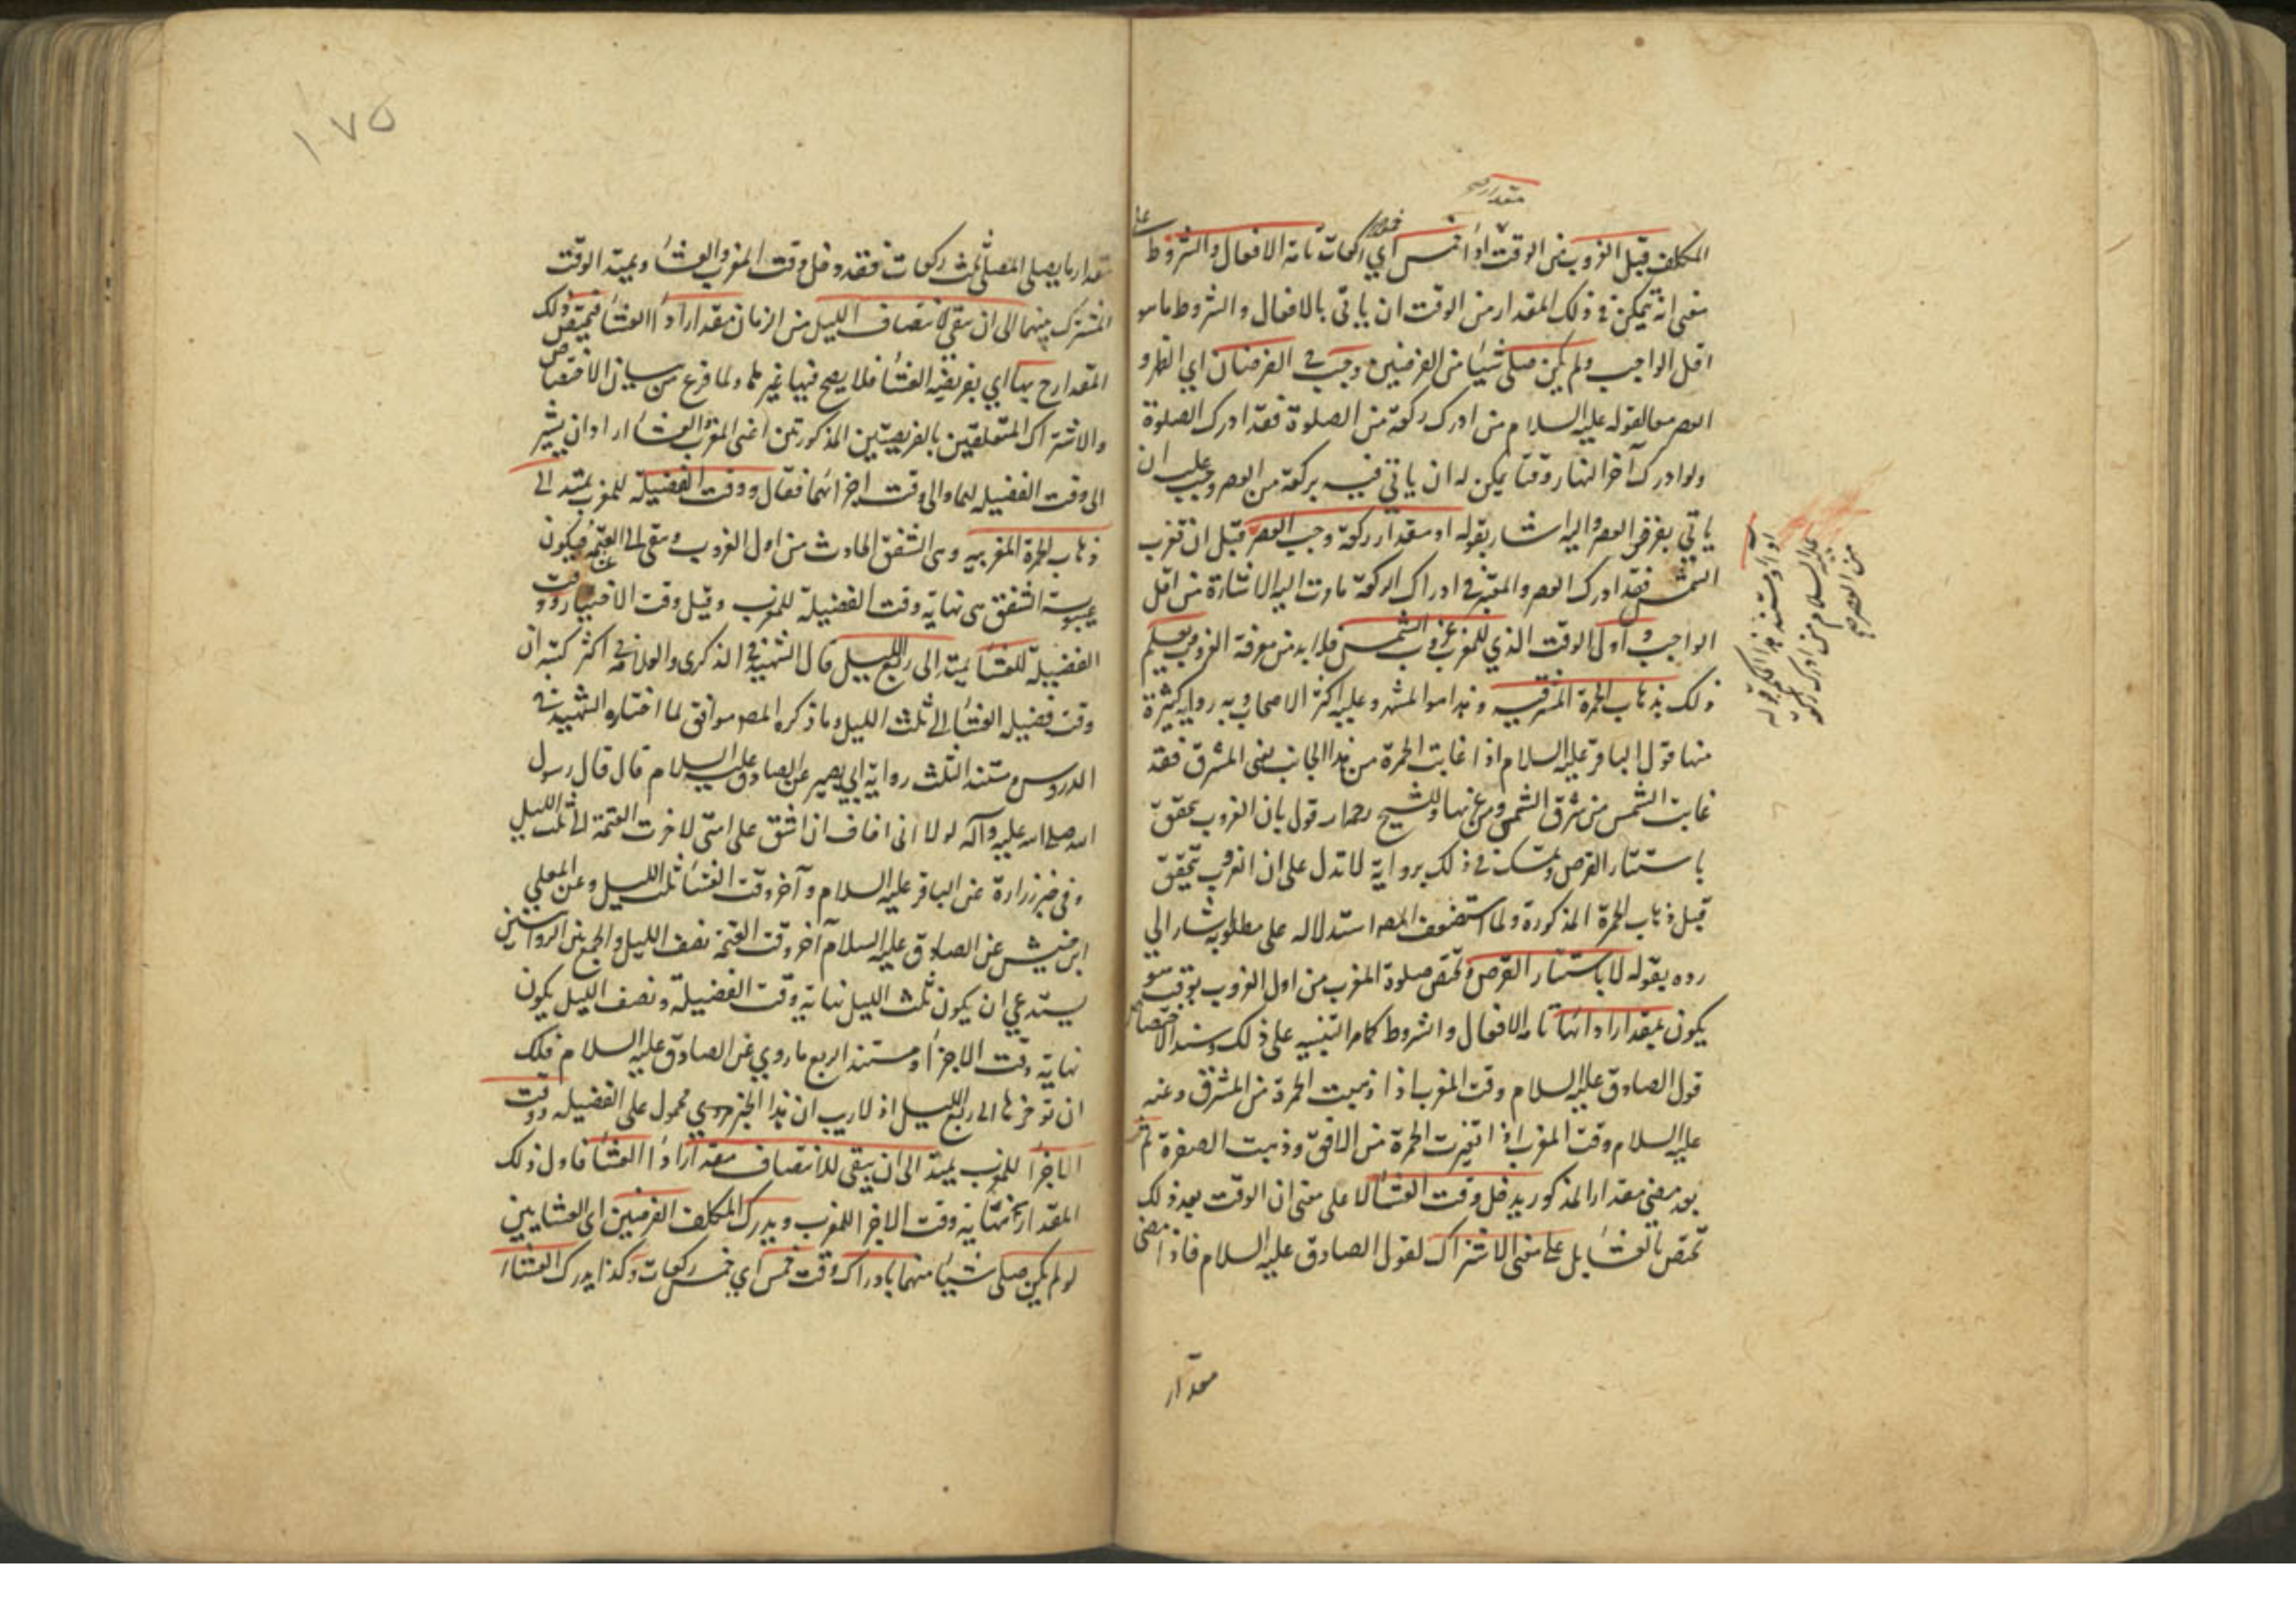 مقدار صح
المكلف قبل الغروب من الوقت اداء خمس اي ركعات تامة الافعال والشروط على
معنى انه يتمكن في ذلك المقدار من الوقت ان ياتي بالافعال والشروط ما هو
اقل الواجب ولم يكن صلى شيئا من الفرضين وجب الفرضان اي الظهر و
العصر معا لقوله عليه السلام من ادرك ركعة من الصلوة فقد ادرك الصلوة
ولو ادرك آخر النهار وقتا يمكن له ان ياتي فيه بركعة من العصر وجب عليه ان
ياتي بفرض العصر واليه اشار بقوله او مقدار ركعة وجب العصر قبل ان تغرب
الشمس فقد ادرك العصر والمعتبر في ادراك الركعة ما مرت اليه الاشارة من اقل
الواجب و اول الوقت الذي للمغرب غروب الشمس فلا بد من معرفة الغروب يعلم
ذلك بذهاب الحمرة المشرقيه و هذا هو المشهور وعليه اكثر الاصحاب وبه روايات كثيرة
منها قول الباقر عليه السلام اذا غابت الحمرة من هذا الجانب يعني المشرق فقد
غابت الشمس من شرق الشمس ومن غربها وللشيخ رحمه الله قول بان الغروب يتحقق
باستتار القرص وتمسك في ذلك برواية لا تدل على ان الغروب يتحقق
قبل ذهاب الحمرة المذكورة ولما استضعف المصـ استدلاله على مطلوبه اشار الي
رده بقوله لا باستتار القرص وتختص صلوة المغرب من اول الغروب بوقت هو
يكون بمقدار ادائها تامة الافعال والشروط كما مر التنبيه على ذلك ومستند الاختصاص
قول الصادق عليه السلام وقت المغرب اذا ذهبت الحمرة من المشرق وعنه
عليه السلام وقت المغرب اذا تغيرت الحمرة من الافق وذهبت الصفرة ثم
بعد مضي مقدار المذكور يدخل وقت العشاء لا على معنى ان الوقت بعد ذلك
تختص بالعشاء بل على معنى الاشتراك لقول الصادق عليه السلام فاذا مضى
مقدار
او آ ومستند هذا الحكم قوله
عليه السلام من ادرك ركعة
من العصر صح
١٧٥
مقدار ما يصلي المصلي ثلث ركعات فقد دخل وقت المغرب والعشاء ويمتد الوقت
المشترك بينهما الى ان يبقي لانتصاف الليل من الزمان مقدار اداء العشاء فيختص ذلك
المقدار ح بها اي بفريضة العشاء فلا يصح فيها غيرها ولما فرغ من بيان الاختصاص
والاشتراك المتعلقين بالفريضتين المذكورتين اعني المغرب والعشاء اراد ان يشير
الى وقت الفضيلة لهما والى وقت اجزائهما فقال ووقت الفضيلة للمغرب يمتد الى
ذهاب الحمرة المغربيه وهي الشفق الحادث من اول الغروب ويبقى الى العتمة فيكون
غيبوبة الشفق هي نهاية وقت الفضيلة للمغرب وقيل وقت الاختيار ووقت
الفضيلة للعشاء يمتد الى ربع الليل قال الشهيد في الذكرى والعلامة في اكثر كتبه ان
وقت فضيلة العشاء الى ثلث الليل وما ذكره المصـ موافق لما اختاره الشهيد في
الدروس ومستند الثلث رواية ابي بصير عن الصادق عليه السلام قال قال رسول
الله صلى الله عليه وآله لولا اني اخاف ان اشق على امتي لاخرت العتمة الى ثلث الليل
وفي خبر زرارة عن الباقر عليه السلام وآخر وقت العشاء ثلث الليل وعن المعلي
ابن خنيس عن الصادق عليه السلام آخر وقت العتمة نصف الليل والجمع بين الروايتين
يستدعي ان يكون ثلث الليل نهاية وقت الفضيلة ونصف الليل يكون
نهاية وقت الاجزاء ومستند الربع ما روي عن الصادق عليه السلام فلك
ان تؤخرها الى ربع الليل اذ لا ريب ان هذا الخبر محمول على الفضيلة ووقت
الاجزاء للمغرب يمتد الى ان يبقى للانتصاف مقدار اداء العشاء فاول ذلك
المقدار نهاية وقت الاجزاء للمغرب ويدرك المكلف الفرضين اي العشايين
لو لم يكن صلى شيئا منهما بادراك وقت خمس اي خمس ركعات وكذا يدرك العشاء